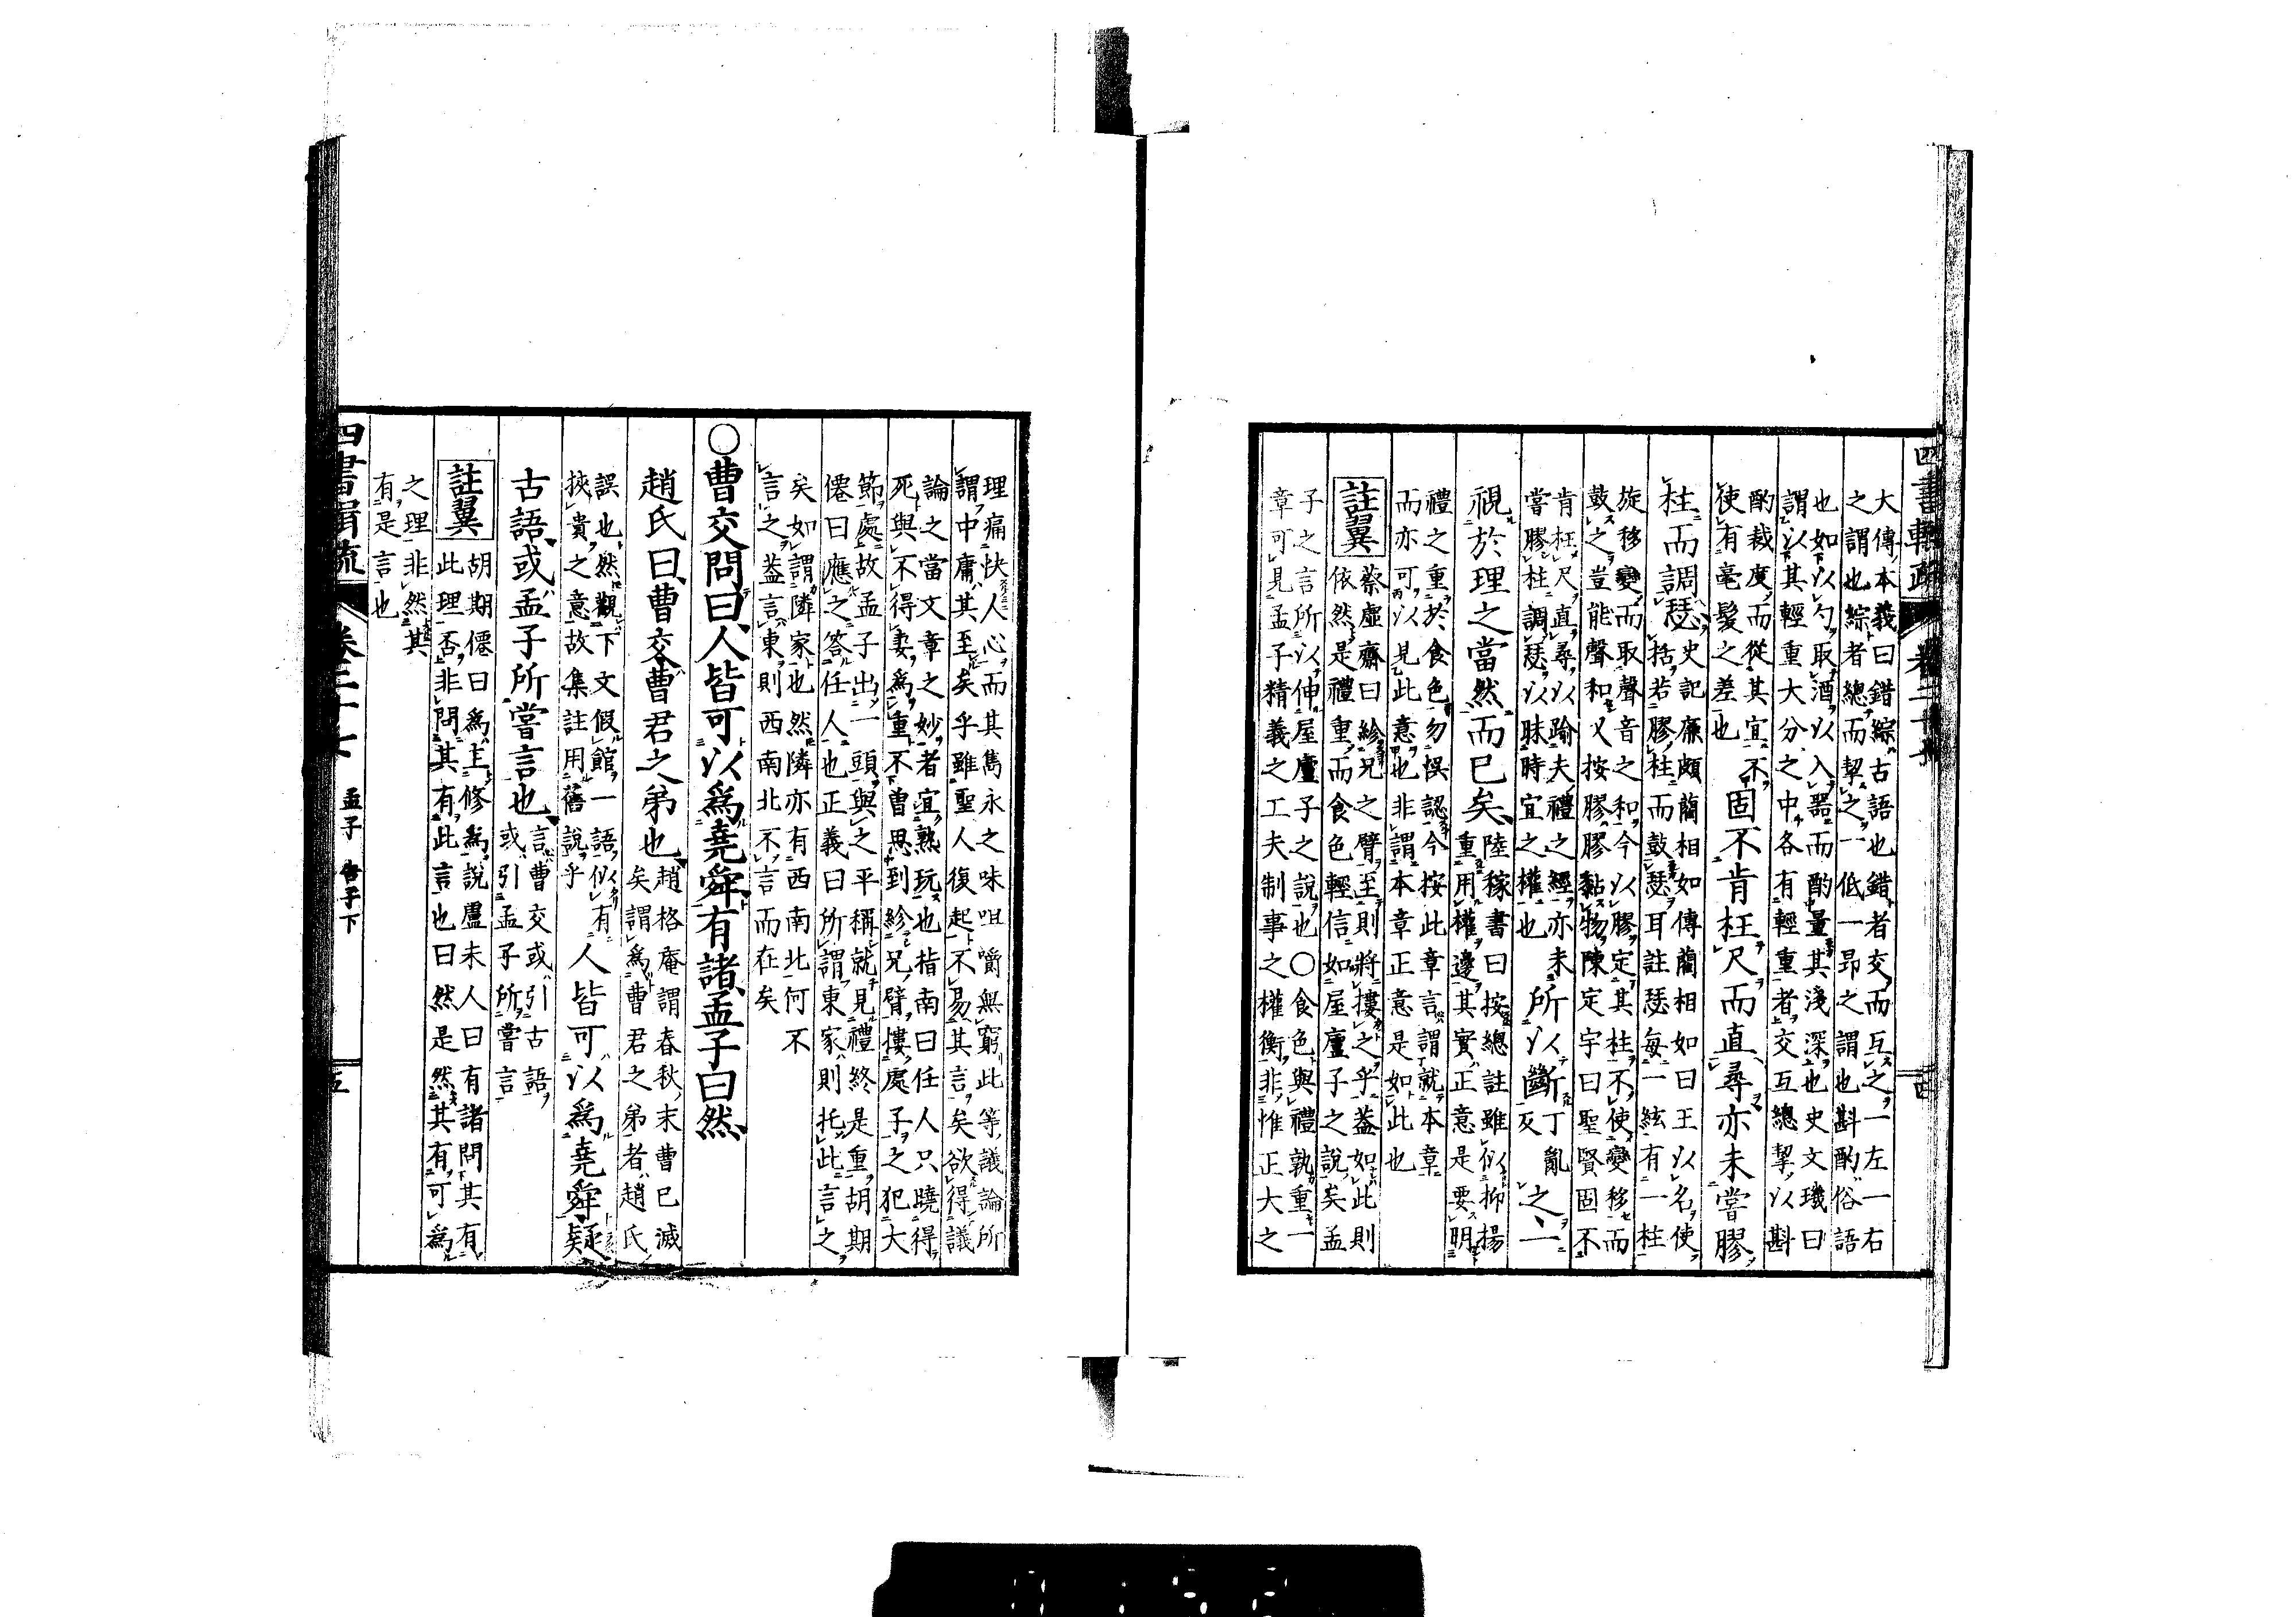 四書輯疏 卷二十 四
大傳本義曰錯綜古語也錯者交而互之一左一右
之謂也綜者總而挈之一低一昂之謂也斟酌俗語
也如以勺取酒以入器而酌量其淺深也史文璣曰
謂以其輕重大分之中各有輕重者交互總挈以斟
酌裁度而從其宜不
使有毫髮之差也
固不肯枉尺而直尋亦未嘗膠
柱而調瑟
史記廉頗藺相如傳藺相如曰王以名使
括若膠柱而鼓瑟耳註瑟每一絃有一柱
旋移變而取聲音之和今以膠定其柱不使變移而
鼓之豈能聲和又按膠膠黏物陳定宇曰聖賢固不
肯枉尺直尋以踰夫禮之經亦未
嘗膠柱調瑟以昧時宜之權也
所以斷
丁亂
反
之一
視於理之當然而已矣
陸稼書曰按總註雖似抑揚
重用權邊其實正意是要明
禮之重於食色勿悞認今按此章言謂就本章
而亦可以見此意也非謂本章正意是如此也
註翼
蔡虛齋曰紾兄之臂至則將摟之乎葢如此則
依然是禮重而食色輕信如屋廬子之說矣孟
子之言所以伸屋廬子之說也○食色與禮孰重一
章可見孟子精義之工夫制事之權衡非惟正大之
理痛快人心而其雋永之味咀嚼無窮此等議論所
謂中庸其至矣乎雖聖人復起不易其言矣欲得議
論之當文章之妙者宜熟玩也指南曰任人只曉得
死與不得妻爲重不曾思到紾兄臂摟處子之犯大
節處故孟子出一頭與之平稱就見禮終是重胡期
僊曰應之答任人也正義曰所謂東家則托此言之
矣如謂隣家也然隣亦有西南北何不
言之葢言東則西南北不言而在矣
○曹交問曰人皆可以爲堯舜有諸孟子曰然
趙氏曰曹交曹君之弟也
趙格庵謂春秋末曹已滅
矣謂爲曹君之弟者趙氏
誤也然觀下文假館一語似有
挾貴之意故集註用舊說乎
人皆可以爲堯舜疑
古語或孟子所嘗言也
言曹交或引古語
或引孟子所嘗言
註翼
胡期僊曰爲主修爲說盧未人曰有諸問其有
此理否非問其有此言也曰然是然其有可爲
之理非然其
有是言也
四書輯疏 卷二十七 孟子 告子下 五